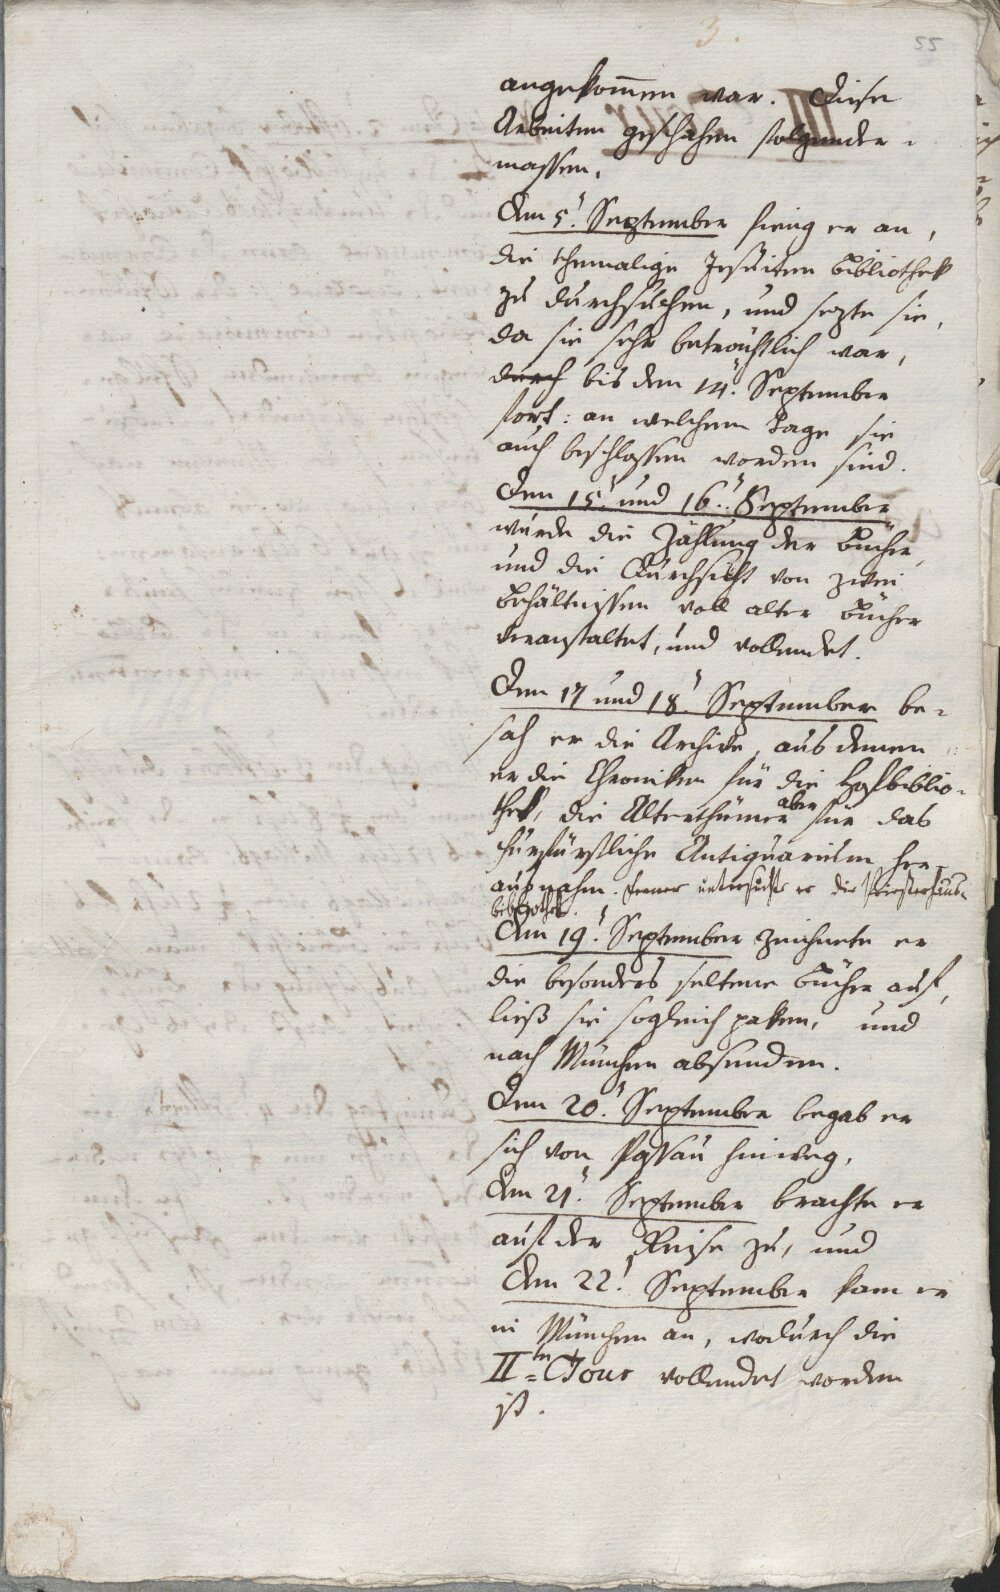 3.
55
angekom̅en war. Diese
Arbeiten geschahen folgender=
massen.
Am 5t. September fieng er an,
die ehemalige Jesuiten Bibliothek
zu durchsuchen, und sezte sie,
da sie sehr beträchtlich war,
durch bis den 14t. September
fort: an welchem Tage sie
auch beschlossen worden sind.
Den 15t. und 16t. September
wurde die Zählung der Bücher,
und die Durchsicht von zwei
Behältnissen voll alter Bücher
veranstaltet, und vollendet.
Den 17 und 18t. September be=
sah er die Archive, aus denen
er die Chroniken für die Hofbiblio=
thek, die Alterthümer aber für das
Churfürstliche Antiquarium her=
ausnahm. Ferner untersuchte er die Priesterhaus=
bibliothek.
Am 19t. September zeichnete er
die besonders seltene Bücher auf,
ließ sie sogleich paken, und
nach München absenden.
Den 20t. September begab er
sich von Passau hinweg,
Am 21t. September brachte er
auf der Reise zu, und
Am 22t. September kam er
in München an, wodurch die
IIte Tour vollendet worden
ist.